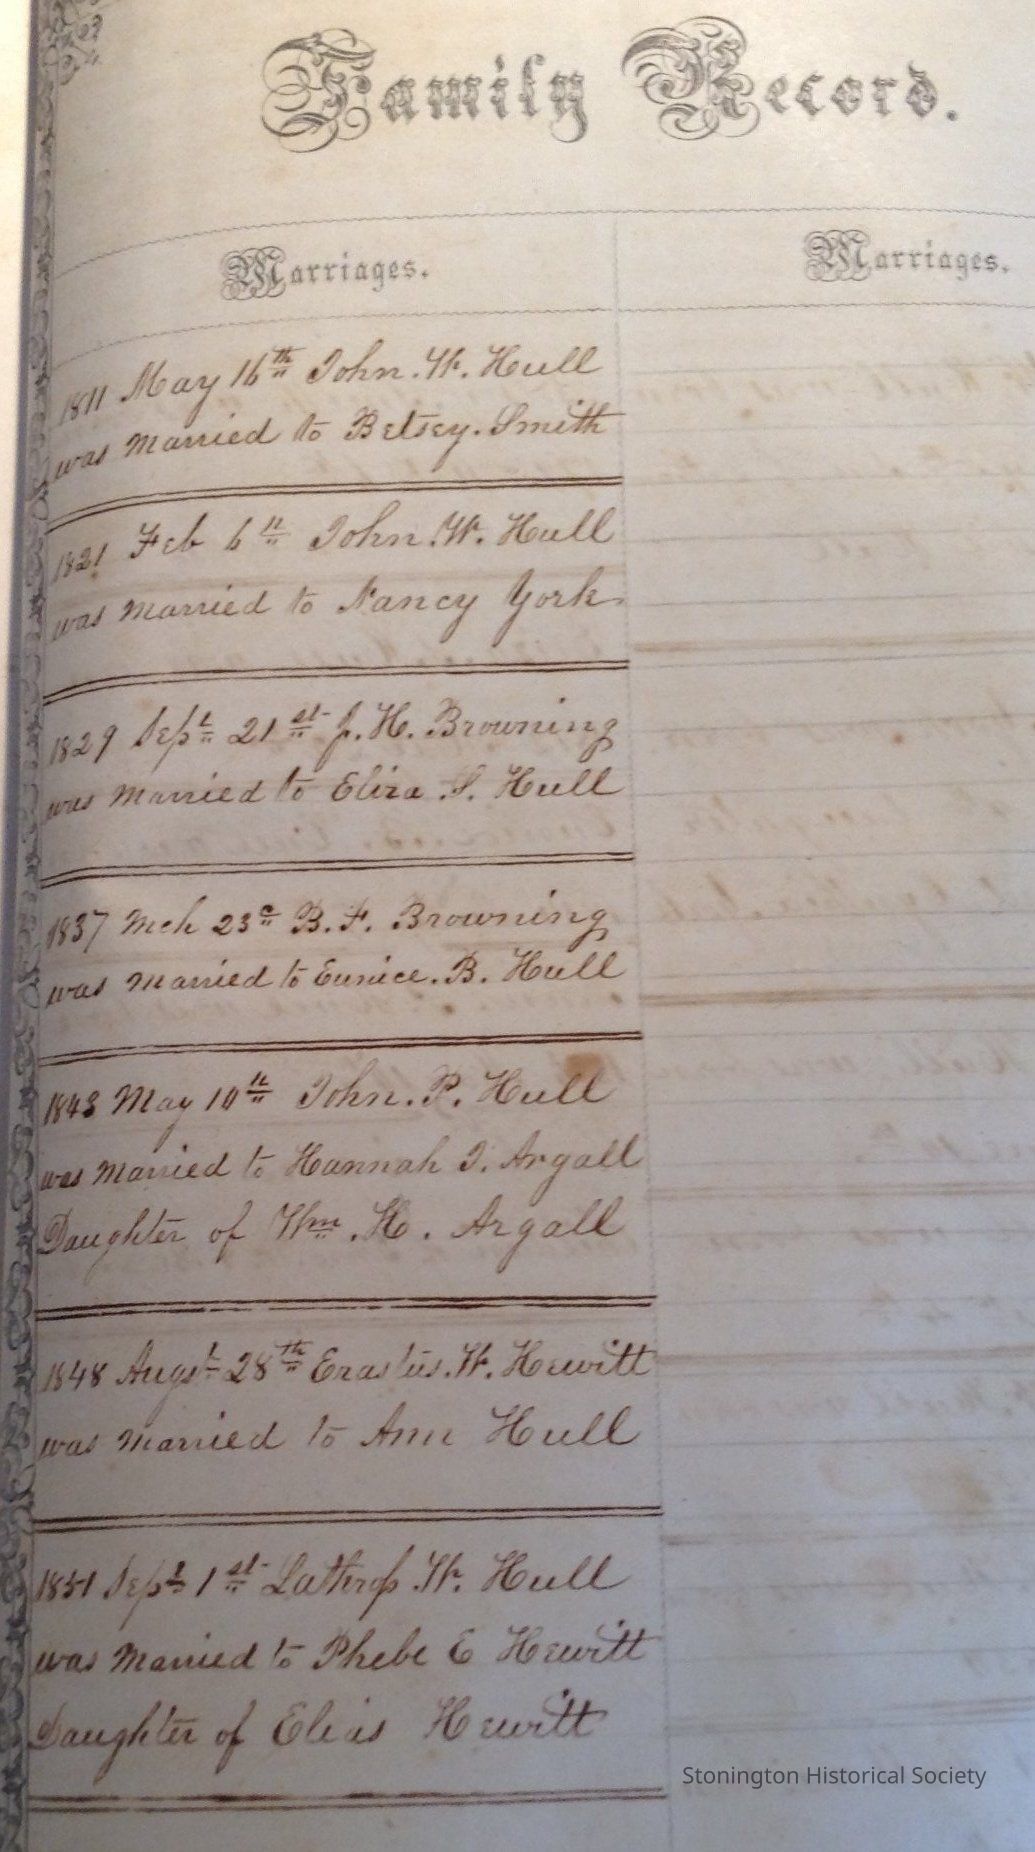 Family Record.
Marriages.
Marriages.
1811 May 16th John. W. Hull
was Married to Betsey. Smith
1821 Feb 6th John. W. Hull
was Married to Nancy York.
1829 Sept 21st J. H. Browning
was Married to Eliza S. Hull
1837 Mch 23d B. F. Browning
was Married to Eunice. B. Hull
1843 May 10th John. P. Hull
was Married to Hannah I. Argall
Daughter of Wm. H. Argall
1848 Augst 28th Erastus. W. Hewitt
was Married to Ann Hull
1851 Sept 1st Lathrop W. Hull
was Married to Phebe E Hewitt
Daughter of Elias Hewitt
Stonington Historical Society